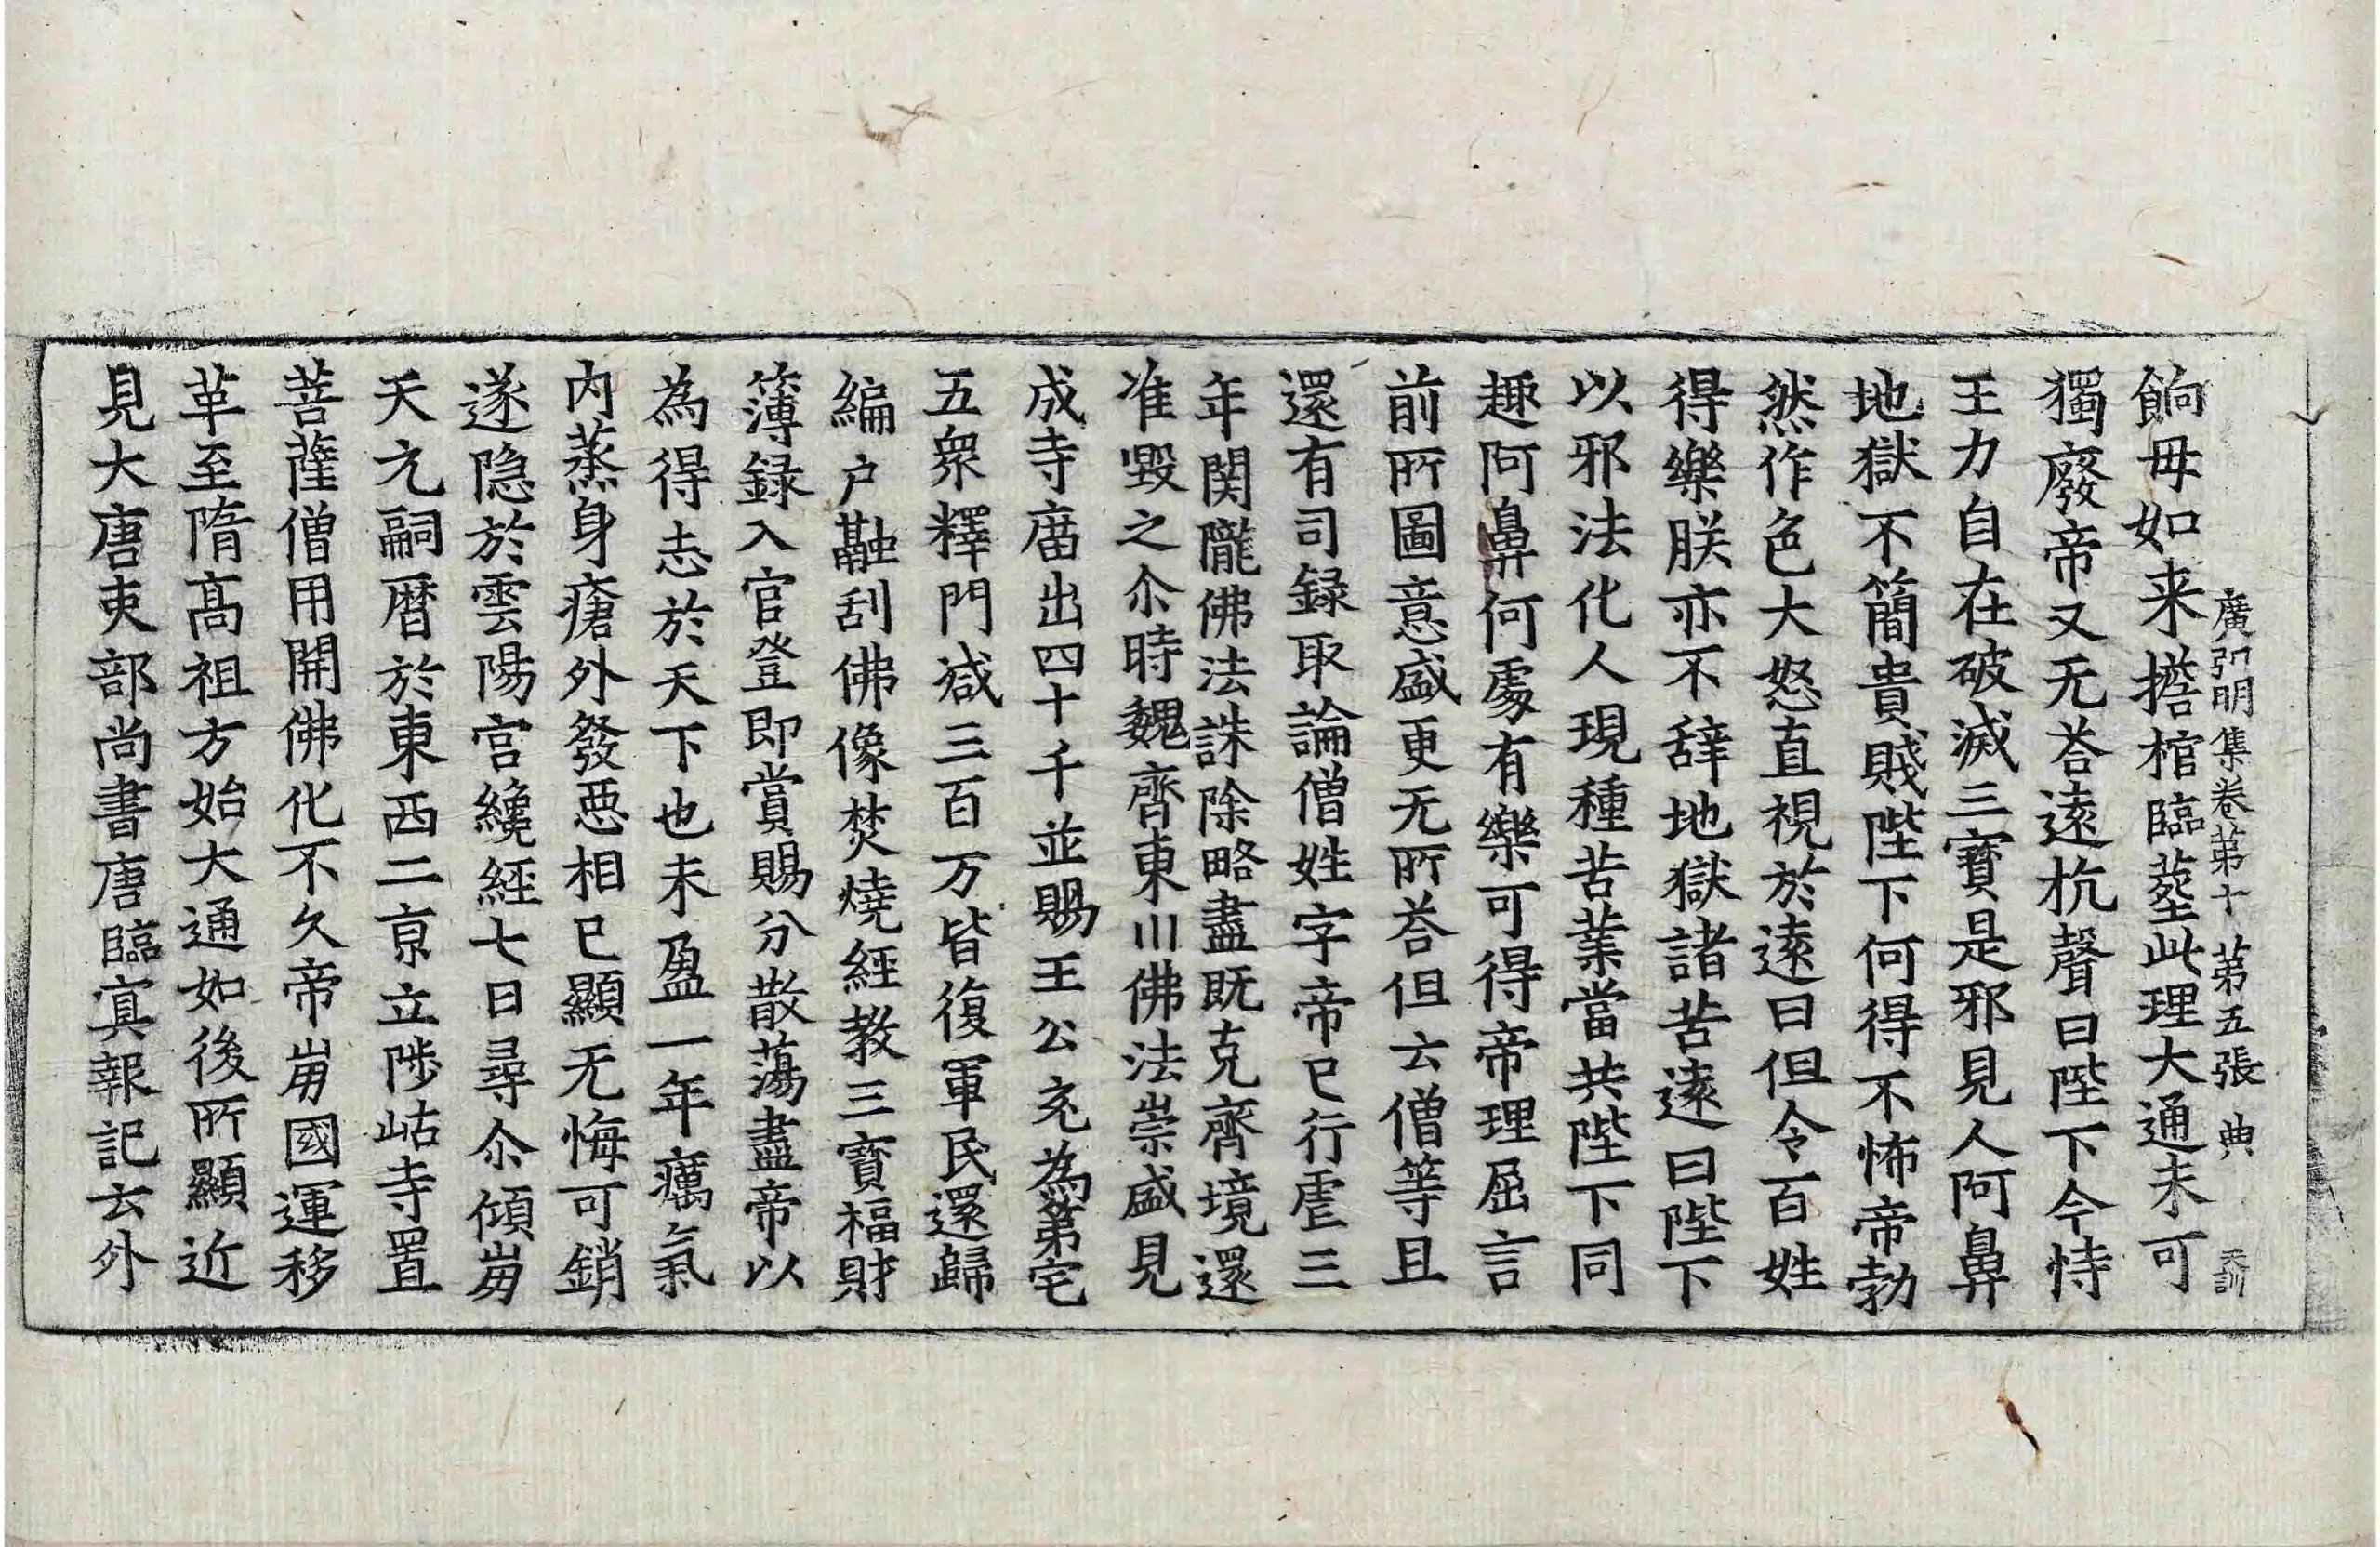 廣弘明集卷第十 第五張 典 天訓
餉母如来擔棺臨塟此理大通未可
獨廢帝又无荅遠抗聲曰陛下今恃
王力自在破滅三寶是邪見人阿鼻
地獄不簡貴賤陛下何得不怖帝勃
然作色大怒直視於遠曰但令百姓
得樂朕亦不辞地獄諸苦遠曰陛下
以邪法化人現種苦業當共陛下同
趣阿鼻何處有樂可得帝理屈言
前所圖意盛更无所荅但云僧等且
還有司録取論僧姓字帝已行虐三
年関隴佛法誅除略盡既克齊境還
准毀之尒時魏齊東川佛法崇盛見
成寺廟出四十千並賜王公充為第宅
五衆釋門减三百万皆復軍民還歸
編户融刮佛像焚燒經教三寶福財
簿録入官登即賞賜分散蕩盡帝以
為得志於天下也未盈一年癘氣
内蒸身瘡外發惡相已顯无悔可銷
遂隐於雲陽宫纔經七日尋尒傾崩
天元嗣暦於東西二京立陟岵寺置
菩薩僧用開佛化不久帝崩國運移
革至隋髙祖方始大通如後所顯近
見大唐吏部尚書唐臨冥報記云外